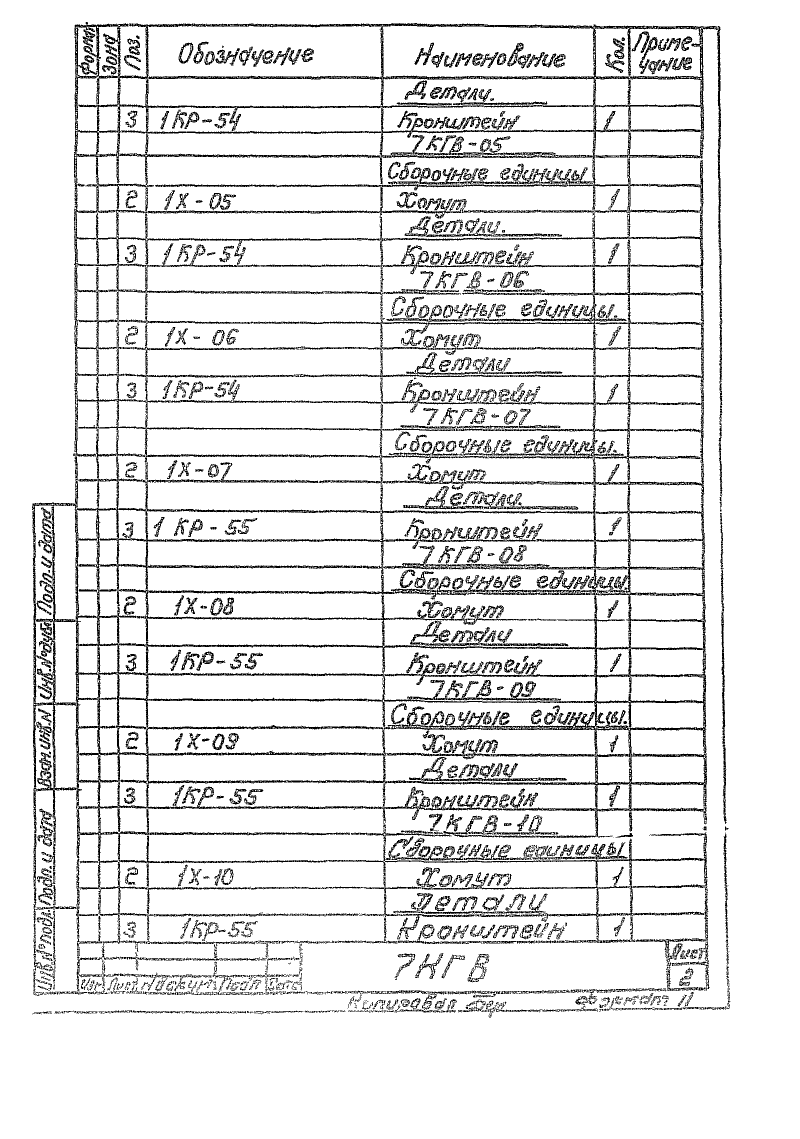 Формат Зона Поз. Обозначение Наименование Кол. Приме-чание
Детали.
3 1КР-54 Кронштейн 1
7КГВ-05
Сборочные единицы
2 1Х-05 Хомут 1
Детали.
3 1КР-54 Кронштейн 1
7КГВ-06
Сборочные единицы.
2 1Х-06 Хомут 1
Детали
3 1КР-54 Кронштейн 1
7КГВ-07
Сборочные единицы.
2 1Х-07 Хомут 1
Детали.
3 1 КР-55 Кронштейн 1
7КГВ-08
Сборочные единицы
2 1Х-08 Хомут 1
Детали
3 1КР-55 Кронштейн 1
7КГВ-09
Сборочные единицы.
2 1Х-09 Хомут 1
Детали
3 1КР-55 Кронштейн 1
7КГВ-10
Сборочные единицы
2 1Х-10 Хомут 1
Детали
3 1КР-55 Кронштейн 1
Подп. и дата
Инв.№ дубл
Взам.инв.№
Подп. и дата
Инв.№ подл.
Изм Лист № докум Подп Дата
7КГВ
Лист
2
Копировал формат 11